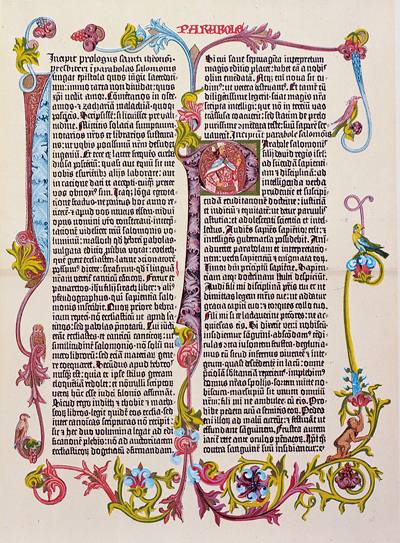 PARABOLE
Incipit prologus sancti iheronimi
presbiteri in parabolas salomonis
Iungat epistola quos iungit sacerdo-
tium: immo carta non dividat: quos
xp̄i nectit amor. Cōmentarios in osee-
amos ⁊ zachariā malachiā· quoqꝫ
poscitis. Scripsissē: si licuisset pre vali-
tudine. Mittitis solacia sumptuum·
notarios nr̄os et librarios sustenta-
tis: ut vobis potissimū nr̄m desudet
ingeniū. Et ecce ex latere frequēs turba
diversa poscētiū: quasi aut equū sit me
vobis esurientibꝫ aliis laborare: aut
in ratione dati et accepti· cuiqꝫ preter
vos obnoxiꝰ sim. Itaqꝫ lōga egrota-
tione fractus· ne penitus hoc anno re-
ticerē· ⁊ apud vos mutus essem· tridui
opus nomini vr̄o consecravi· interp̄-
tationē videlicet triū salomonis vo-
luminū: masloth qd̄ hebrei pabolas·
vulgata editio pūbia vocat: coeleth·
quē grece ecclesiasten· latine cōcionatorē
possumꝰ dicere: sirasirim· qd̄ ī linguā
nrām vertit̄ canticū cāticoꝝ. Fertur et
panaretos· ihū filii sirach liber: ⁊ aliꝰ
pseudographus· qui sapientia salo-
monis inscribit̄. Quoꝝ priorē hebra-
icum reperi· nō ecclesiasticū ut apud la-
tinos: sed pabolas pnotatū. Cui iūcti
erāt ecclesiastes· et canticū canticoꝝ: ut
similitudinē salomonis· nō solū nu-
mero librorū: sed etiā materiaꝝ gene-
re coequaret. Secūdus apud hebreos
nusꝗ̄ est: quia et ipse stilus grecam
eloquētiā redolet: et nōnulli scriptoꝝ
veterū hūc esse iudei filonis affirmāt.
Sicut ergo iudith ⁊ thobie ⁊ macha-
beoꝝ libros· legit quidē eos eccl̄ia· sed
inter canonicas scripturas nō recipit:
sic ⁊ hec duo volumina legat ad edi-
ficationē plebis: nō ad auctoritatem
ecclesiasticoꝝ dogmatū affirmandam.
Si cui sane septuaginta interpretum
magis editio placet: habet eā a nobis
olim emēdatā. Neqꝫ eni nova sic cu-
dimꝰ: ut vetera destruamꝰ. Et tamē cū
diligentissime legerit· sciat magis nr̄a
scripta intelligi: que nō in tertiū vas
trāsfusa coacuerīt: sed statim de prelo
purissime cōmēdata teste: suū saporē ser-
vaverīt. Incipiūt parabole salomonis
Parabole salomonis
filii david regis isrl̄:
ad sciendā sapienti-
am ⁊ disciplinā: ad
intelligenda verba
prudentie et suscipi-
endā eruditationē doctrine: iusticiā
et iudiciū ⁊ equitatē: ut detur parvulis
astutia: et adolescenti scientia et intel-
lectus. Audiēs sapiēs sapiētior erit: ⁊
intelligēs gubernacla possidebit. Ani-
advertet parabolam et interpretatio-
nem: verba sapientiū ⁊ enigmata eoꝝ.
Timor dn̄i principiū sapiētie. Sapien-
tiam atqꝫ doctrinam stulti despiciūt.
Audi fili mi disciplinā pr̄is tui et ne
dimittas legem mr̄is tue: ut addatur
gratia capiti tuo: ⁊ torques collo tuo.
Fili mi si te lactaverint pctōres: ne ac-
quiescas eis. Si dixerint veni nobiscū·
insidiemur sāguini· abscōdamꝰ tedi-
culas ꝯtra insontem frustra· degluti-
amus eū sicud infernus viventē ⁊ inte-
grum· quasi descēdentē in lacū: omnē
preciosā substātiā reperiemꝰ· implebimꝰ
domos nr̄as spoliis· sortem mitte no-
biscum· marsupiū sit unum omniū
nr̄m: fili mi ne ambules cū eis. Pro-
hibe pedem tuū a semitis eoꝝ. Pedes
eni illoꝝ ad malū currūt: ⁊ festināt ut
effundant sanguinem. Frustra autem
iacit̄ rete ante oculos pēnatoꝝ. Ipi qꝫ
contra sanguinē suū insidiantur: et